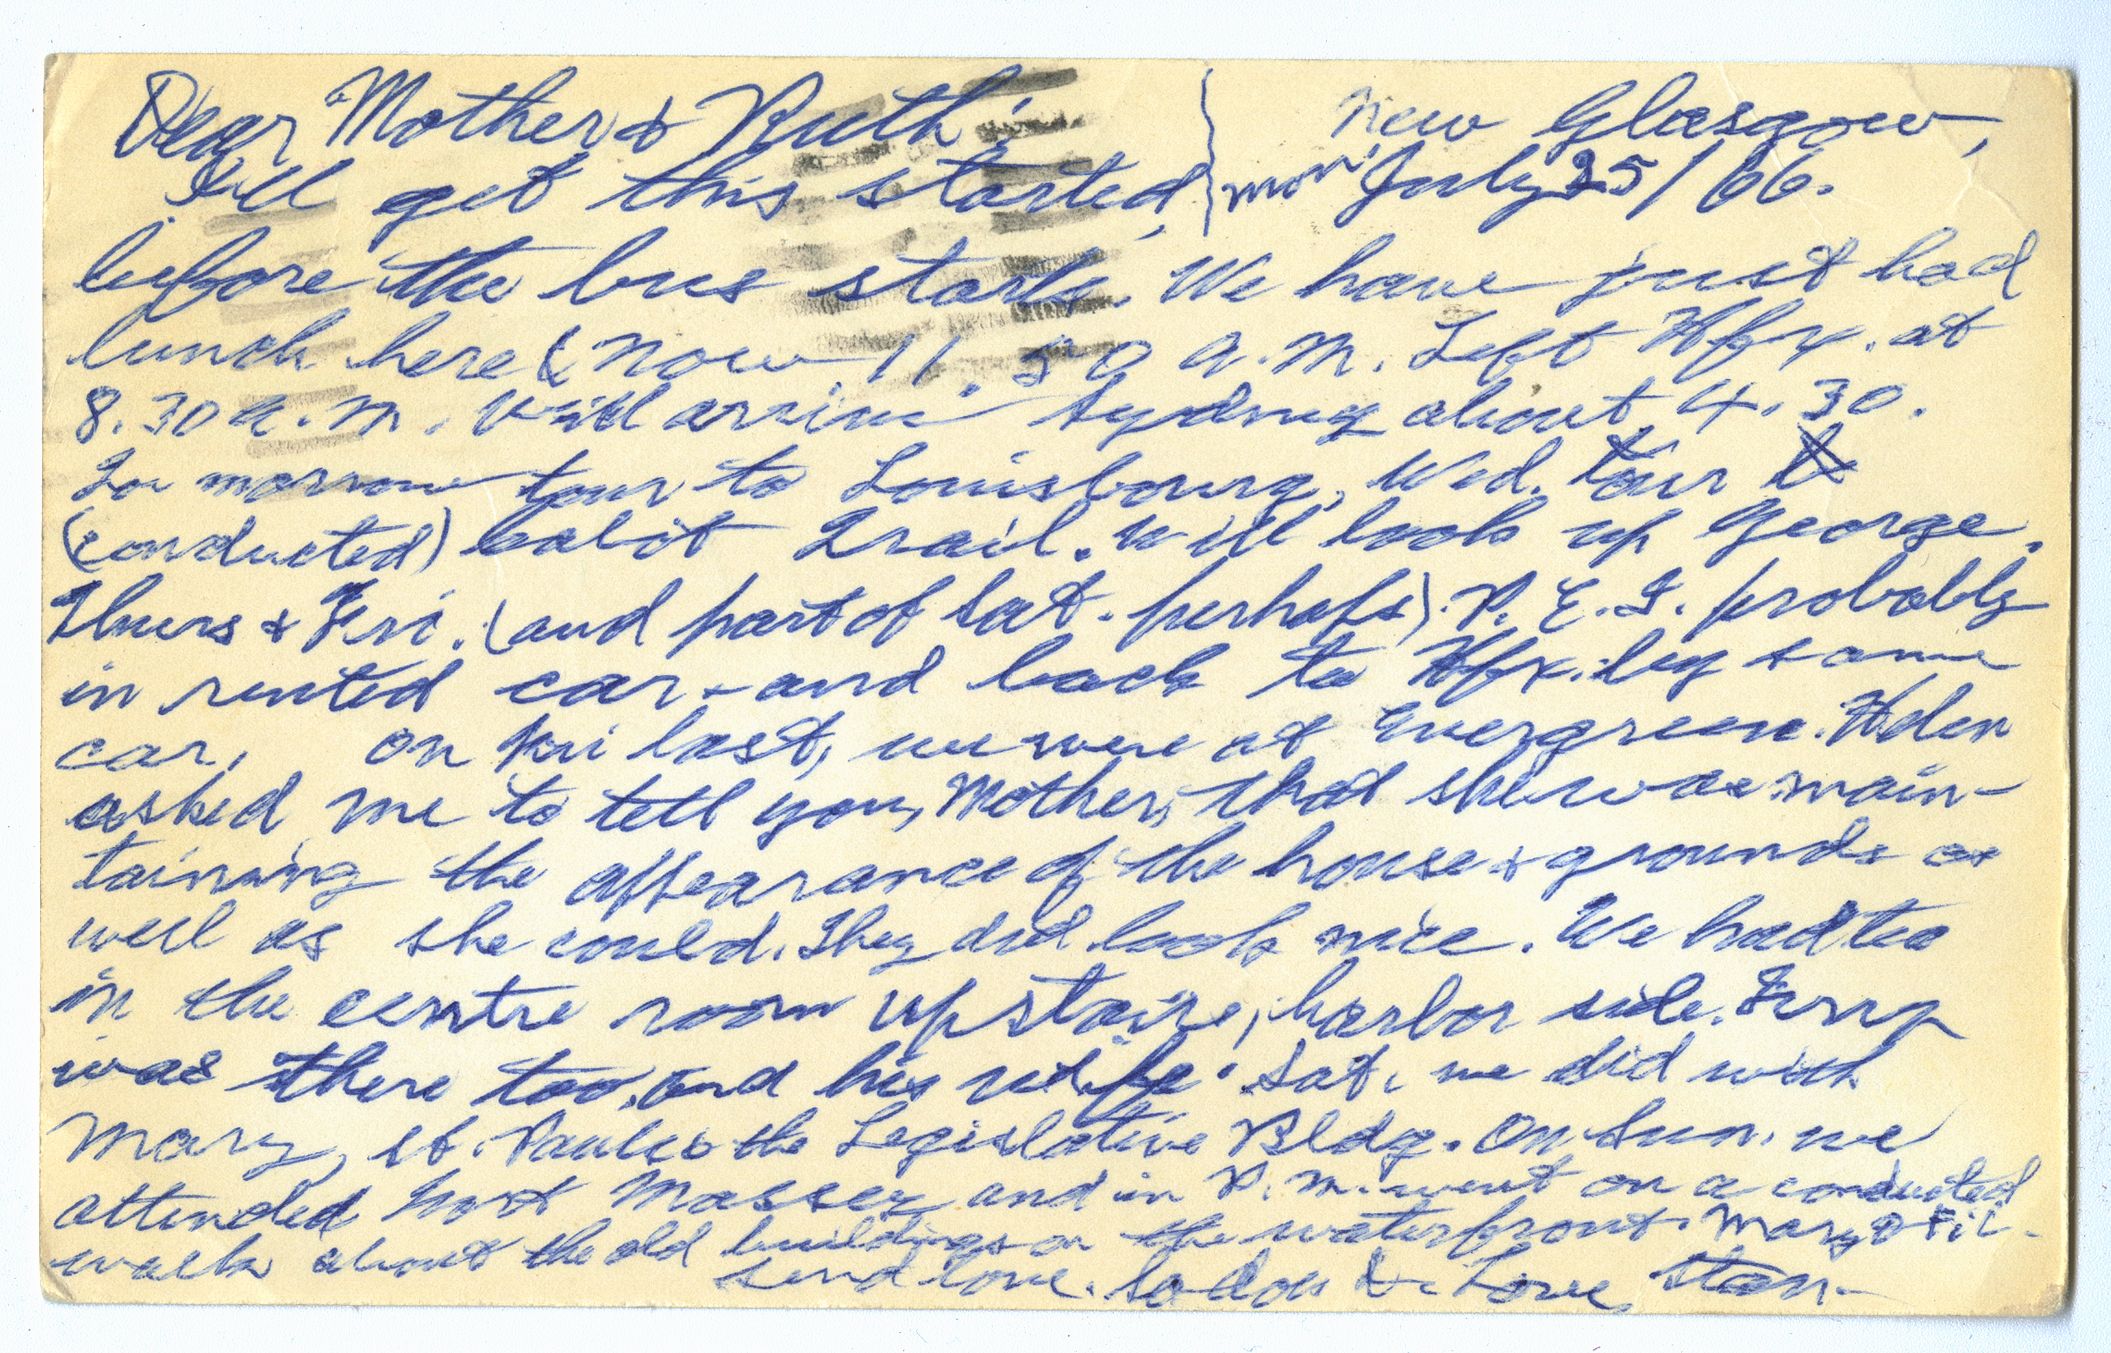 Dear Mother & Ruth:
New Glasgow,
Mon. July 25/66.
I'll get this started,
before the bus starts. We have just had
lunch here & now 11.50 a.m. Left Hfx. at
8.30 a.m. Will arrive Sydney about 4.30.
To morrow tour to Louisbourg, Wed. tour
(conducted) Cabot Trail. Will look up George.
Thurs & Fri. (and part of Sat. perhaps). P.E.I. probably
in rented car - and back to Hfx. by same
car. On Fri last, we were at Evergreen. Helen
asked me to tell you, Mother, that she was main-
taining the appearance of the house & grounds as
well as she could. They did look nice. We had tea
in the centre room upstairs, harbor side. Terry
was there too, and his wife. Sat. we did with
Mary, St. Paul's & the Legislative Bldg. On Sun. we
attended Fort Massey and in P.M. went on a conducted
walk about the old buildings on the waterfront. Mary &
send love. So do I. Love, Stan.